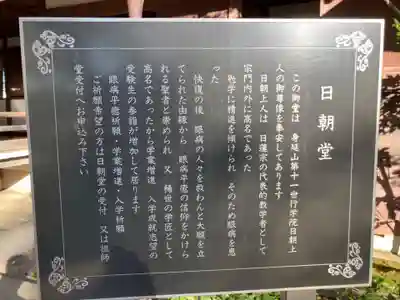 日朝堂
この御堂は 身延山第十一世行学院日朝上
人の御尊像を奉安してあります
日朝上人は 日蓮宗の代表的教学者として
宗門内外に高名であった
勉学に精進を傾けられ そのため眼病を患
った
快復の後 眼病の人々を救わんと大願を立
てられた由縁から 眼病平癒の信仰をかけら
れる聖者と崇められ 又 稀世の学匠として
高名であったから学業増進 入学成就志望の
受験生の参詣が増加して居ります
眼病平癒祈願、学業増進・入学祈願
ご祈願希望の方は日朝堂の受付 又は祖師
堂受付へお申込み下さい